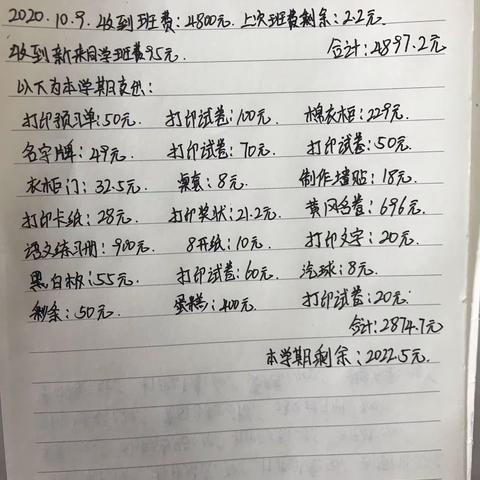 2020.10.9.收到班费:4800元.上次班费剩余:2.2元
收到新来同学班费95元. 合计:4897.2元
以下为本学期支出:
打印预习单:50元. 打印试卷:100元. 棉衣柜:229元.
名字牌:49元. 打印试卷:70元. 打印试卷:50元.
衣柜门:32.5元. 桌套:8元. 制作墙贴:18元.
打印卡纸:28元. 打印奖状:21.2元. 黄冈名卷:696元.
语文练习册:900元. 8开纸:10元. 打印文字:20元.
黑白板:55元. 打印试卷:60元. 汽球:8元.
彩条:50元. 蛋糕:400元. 打印试卷:20元.
合计:2874.7元
本学期剩余:2022.5元.